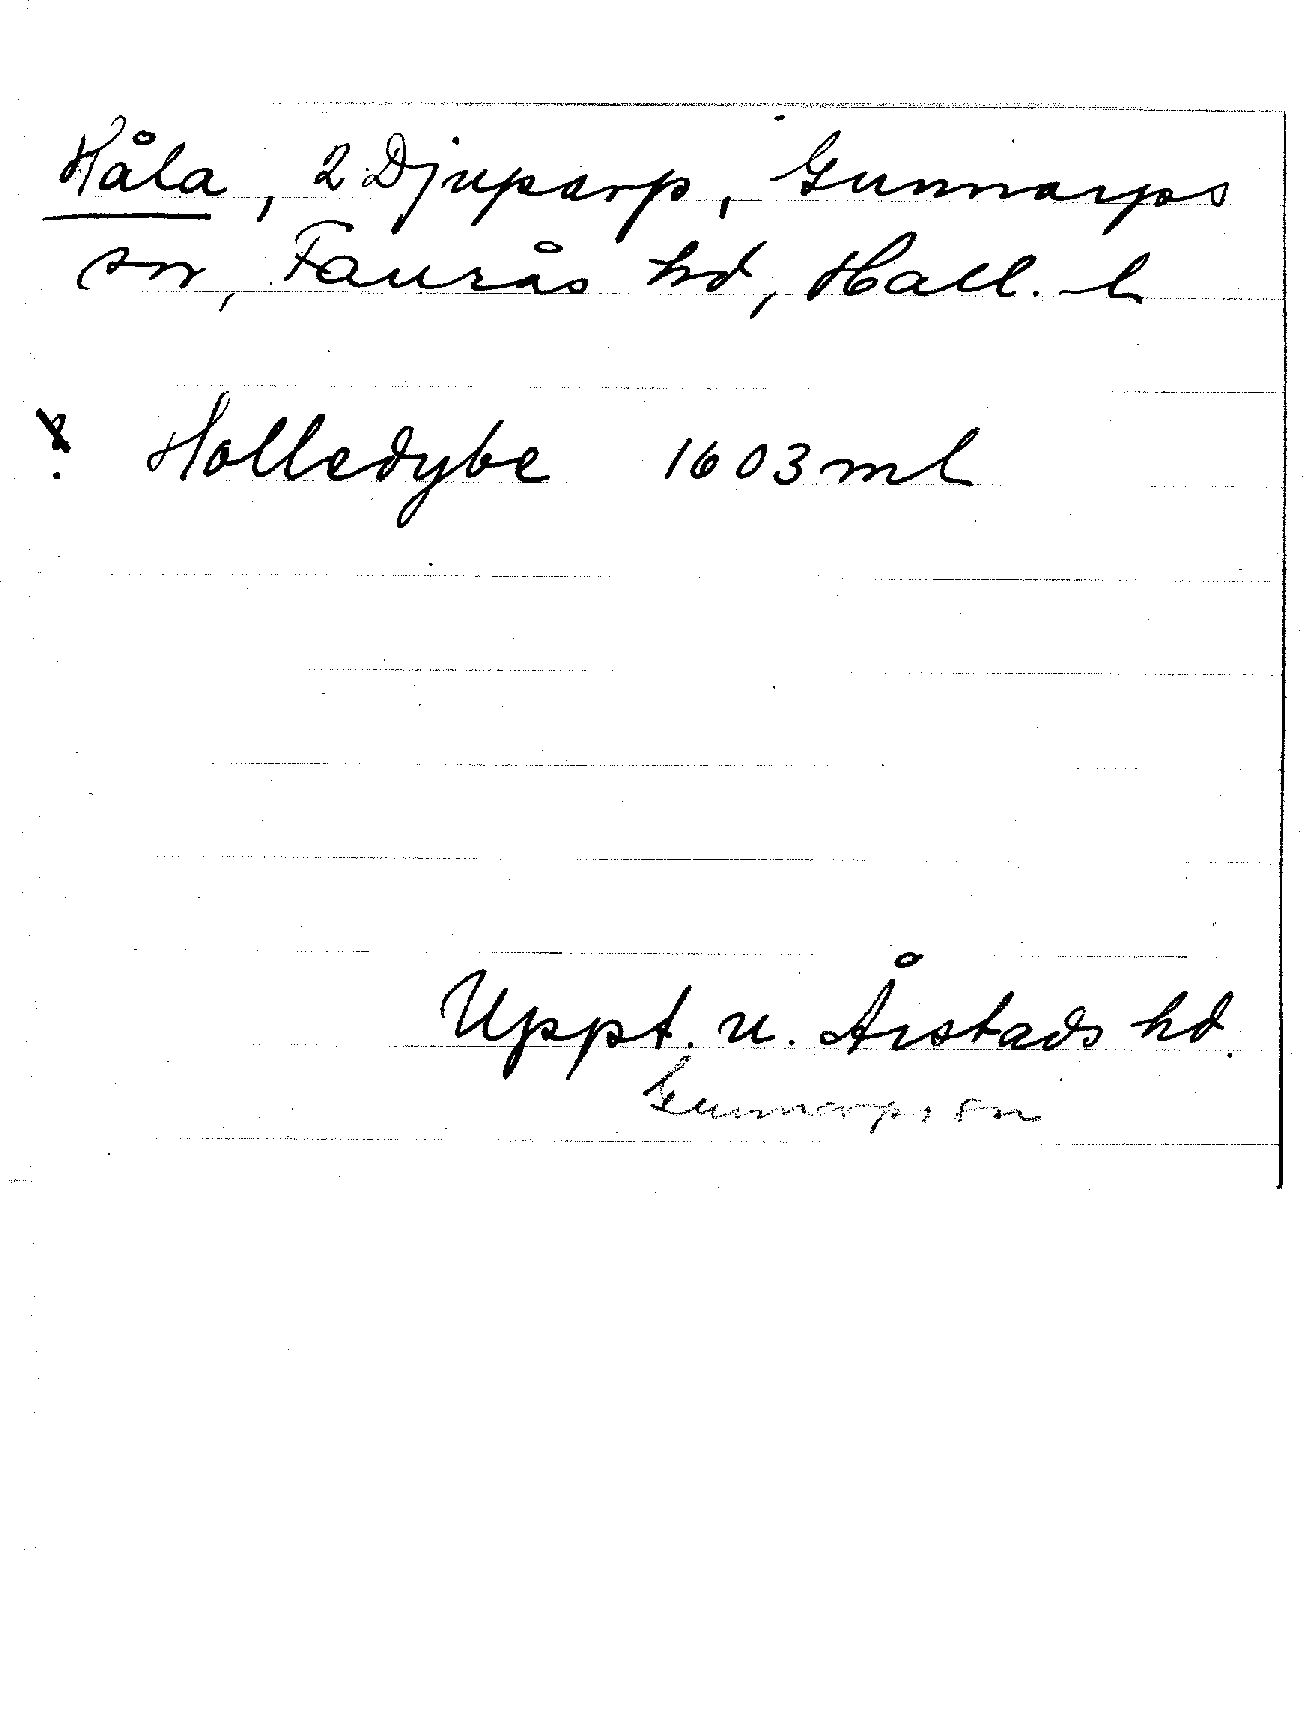 Håla, 2 Djuparp, Gunnarps
sn, Faurås hd, Hall. l
? Holledybe 1603 ml
Uppt. u. Årstads hd.
Gunnarps sn